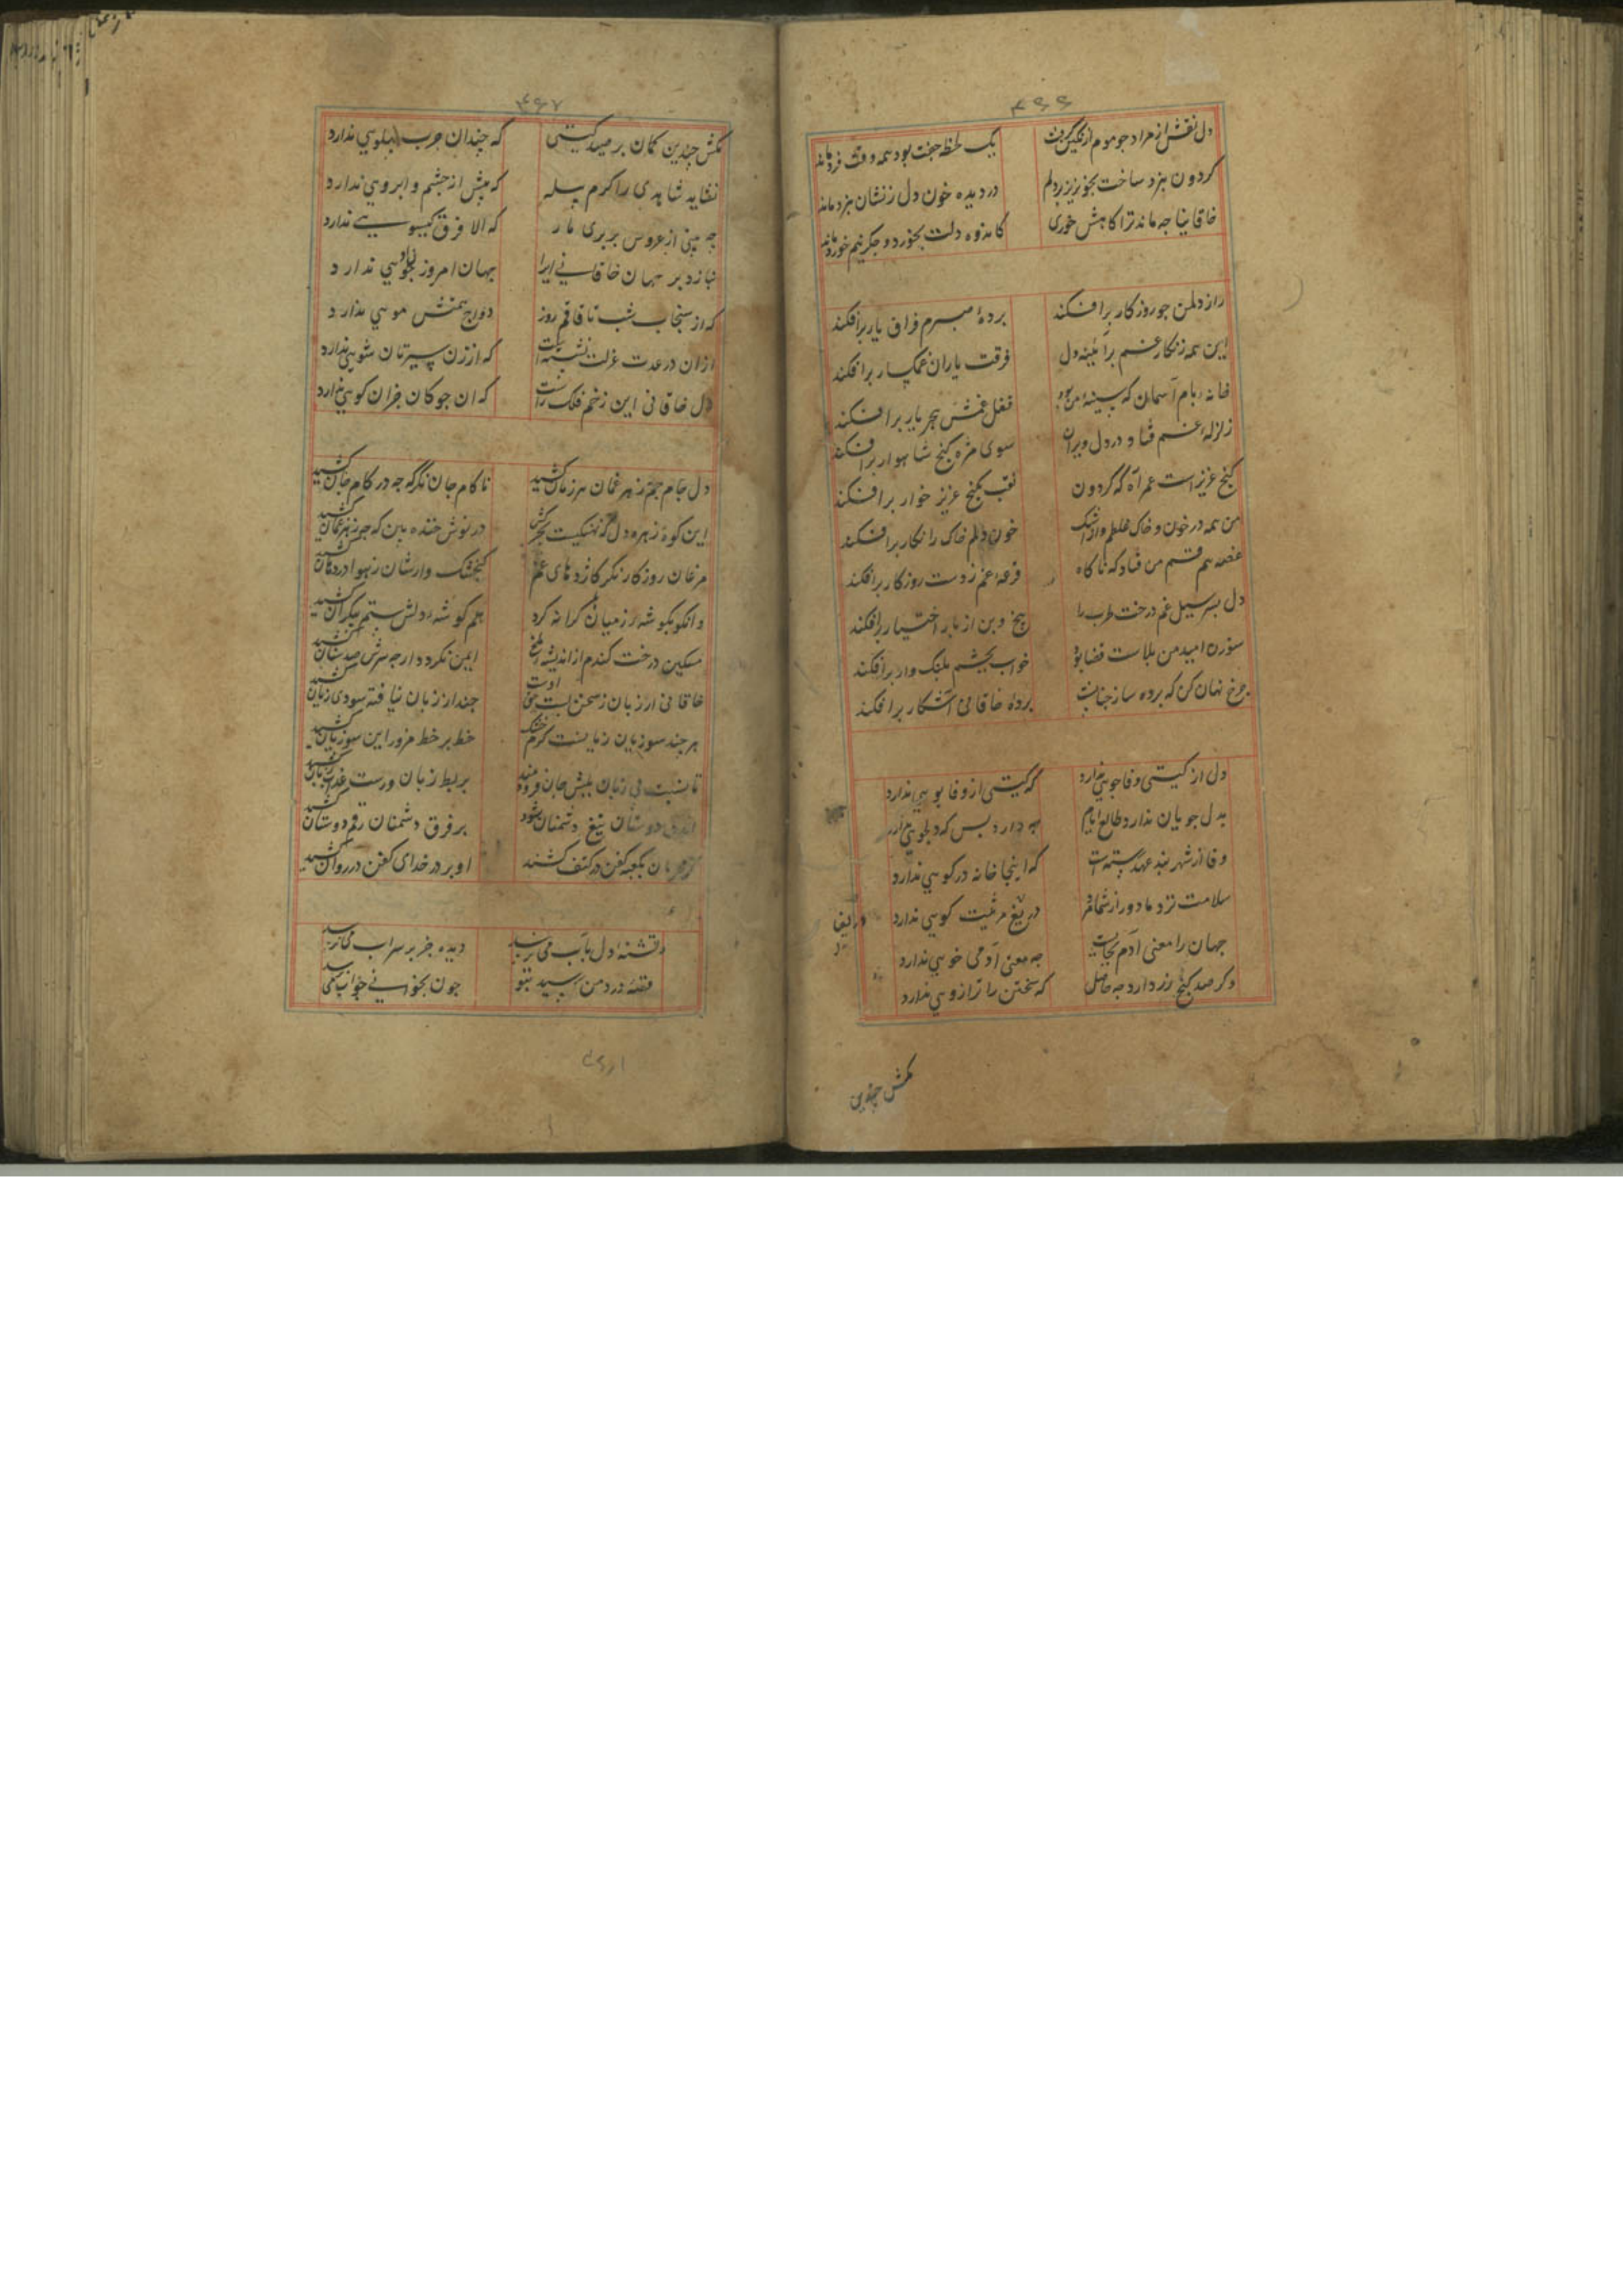 ۴۶۶
دل نقش از مراد جو موم از نکین کرفت
یک لحظه جفت بود همه وقت فرد ماند
کردون بنرد ساخت بخونریز بر دلم
در دیده خون دل ز نشان نبرد ماند
خاقانیا چه ماند ترا کاهش خوری
کاندوه دلت بخورد و جکر نیم خورد ماند
راز دلمن جو روزکار برافکند
پردهٔ صبرم فراق یار برافکند
این همه زنکار غم بر آئینه دل
فرقت یاران غمکسار برافکند
خانه بام آسمان که سینه من بود
قفل غمش هجر یار برافکند
زلزله غم فتاد در دل ویران
سوی مژه کنج شاهوار برافکند
کنج عزیز است عمر آه که کردون
نقب بکنج عزیز خوار برافکند
من همه در خون و خاک غلطم و از اشک
خون دلم خاک را نکار برافکند
غصه هم قسم من فتاد که ناکاه
قرعه غم ز دست روزکار برافکند
دل بسر سیل غم درخت طرب را
بیخ و بن از بار اختیار برافکند
سوزن امید من بدست قضا بود
خواب بچشم پلنک وار برافکند
جرخ نهان کن که پرده ساز جنانست
پردهٔ خاقانی آشکار برافکند
دل از کیتی وفا جویی ندارد
که کیتی از وفا بویی ندارد
بدل جویان ندارد طالع ایام
چه دارد پس که دلجویی ندارد
وفا از شهربند عهد رسته است
که اینجا خانه در کویی ندارد
سلامت نزد ما دور از شما مرد
دریغ مرثیت کویی ندارد
جهان را معنی آدم بجایست
جه معنی آدمی خویی ندارد
وکر صد کنج زر دارد جه حاصل
که سختن را ترازویی ندارد
مکش چندین
۴۶۷
مکش چندین کمان بر صید کیتی
که چندان چرب پهلویی ندارد
نشاید شاهدی را کرم پیله
که پیش از چشم و ابرویی ندارد
چه بینی از عروس بربری ناز
که الا فرق کیسویی ندارد
نیازد بر جهان خاقانی ایرا
جهان امروز نیکویی ندارد
که از سنجاب شب تا قاقم روز
دواج همتش مویی ندارد
ازان در عدت عزلت نشسته است
که از زن سیرتان شویی ندارد
دل خاقانی این زخم فلک راست
که ان جوکان جزان کویی ندارد
دل جام جام زهر غمان هر زمان کشید
ناکام جان نکر که چه در کام جان کشید
مرغان روزکار نکر کاژدهای غم
کنجشک وارشان ز هوا در دهان کشید
وانکو بکوشهٔ ز میان کرانه کرد
هم کوشهٔ دلش ستم بیکران کشید
مسکین درخت کندم از اندیشه
ایمن نکردد ارچه سرش صد سنان کشید
چند از زبان نیافته سودی زیان کشید
خط بر خط مزور این سوزیان کشید
بر فرق دشمنان رقم دوستان کشید
تشنهٔ دل بآب می‌نرسد
دیده جز بر سراب می‌نرسد
قصهٔ درد من رسید بتو
چون بخوانی جواب می‌نرسد